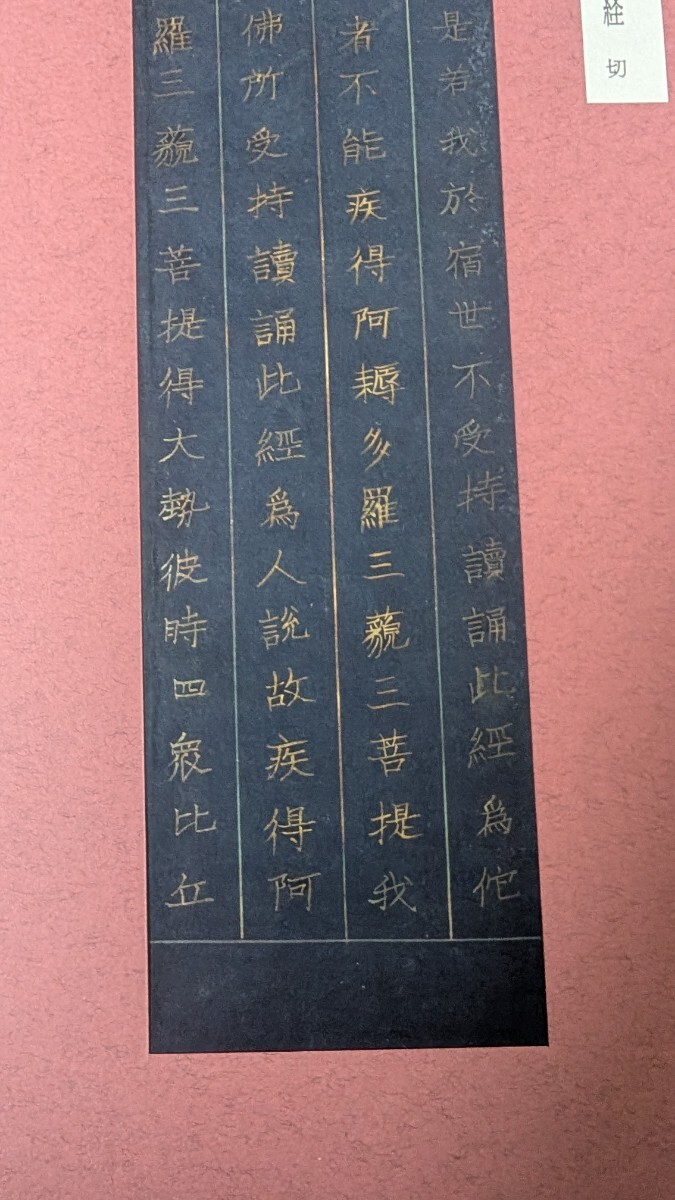 切
是若我於宿世不受持讀誦此經為佗
者不能疾得阿耨多羅三藐三菩提我
佛所受持讀誦此經為人說故疾得阿
羅三藐三菩提得大勢彼時四衆比丘